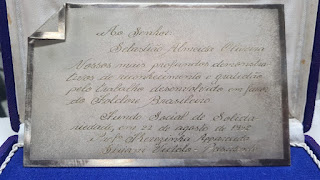 Ao Senhor
Sebastião Almeida Oliveira
Nossas mais profundas demonstra
ções de reconhecimento e gratidão
pelo trabalho desenvolvido em favor
do Folclore Brasileiro
Fundo Social de Solida
riedade, em 22 de agosto de
Aparecida